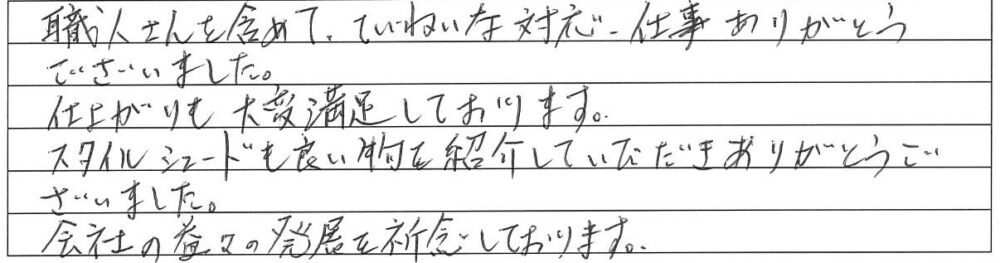 職人さんを含めて、ていねいな対応・仕事ありがとう
ございました。
仕上がりも大変満足しております。
スタイルシェードも良い物を紹介していただきありがとうご
ざいました。
会社の益々の発展を祈念しております。